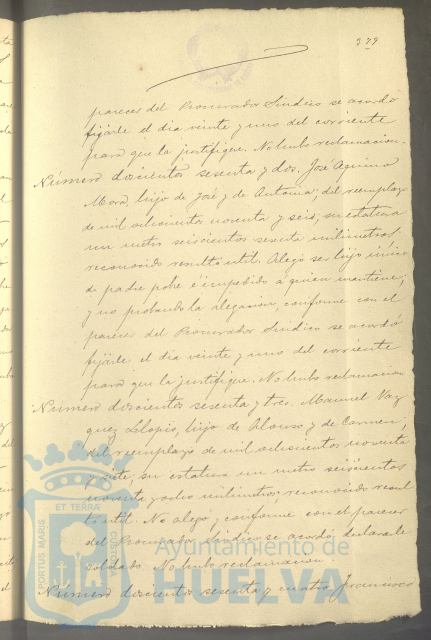 379
parecer del Procurador Síndico se acordó
fijarle el dia veinte y uno del corriente
para que la justifique. No hubo reclamacion.
Número doscientos sesenta y dos. José Aquino
Mora, hijo de José y de Antonia; del reemplazo
de mil ochocientos noventa y seis; su estatura
un metro seiscientos sesenta milimetros;
reconocido resultó util. Alegó ser hijo único
de padre pobre é impedido á quien mantiene;
y no probando la alegacion, conforme con el
parecer del Procurador Síndico se acordó
fijarle el dia veinte y uno del corriente
para que la justifique. No hubo reclamacion
Número doscientos sesenta y tres. Manuel Vaz
quez Llopis, hijo de Alonso y de Carmen;
del reemplazo de mil ochocientos noventa
y siete; su estatura un metro seiscientos
noventa y ocho milimetros; reconocido resul
tó util. No alegó; conforme con el parecer
del Procurador Síndico se acordó declararle
soldado. No hubo reclamacion.
Número doscientos sesenta y cuatro Francisco
PORTUS MARIS ET TERRAE CUSTODIA
Ayuntamiento de
HUELVA